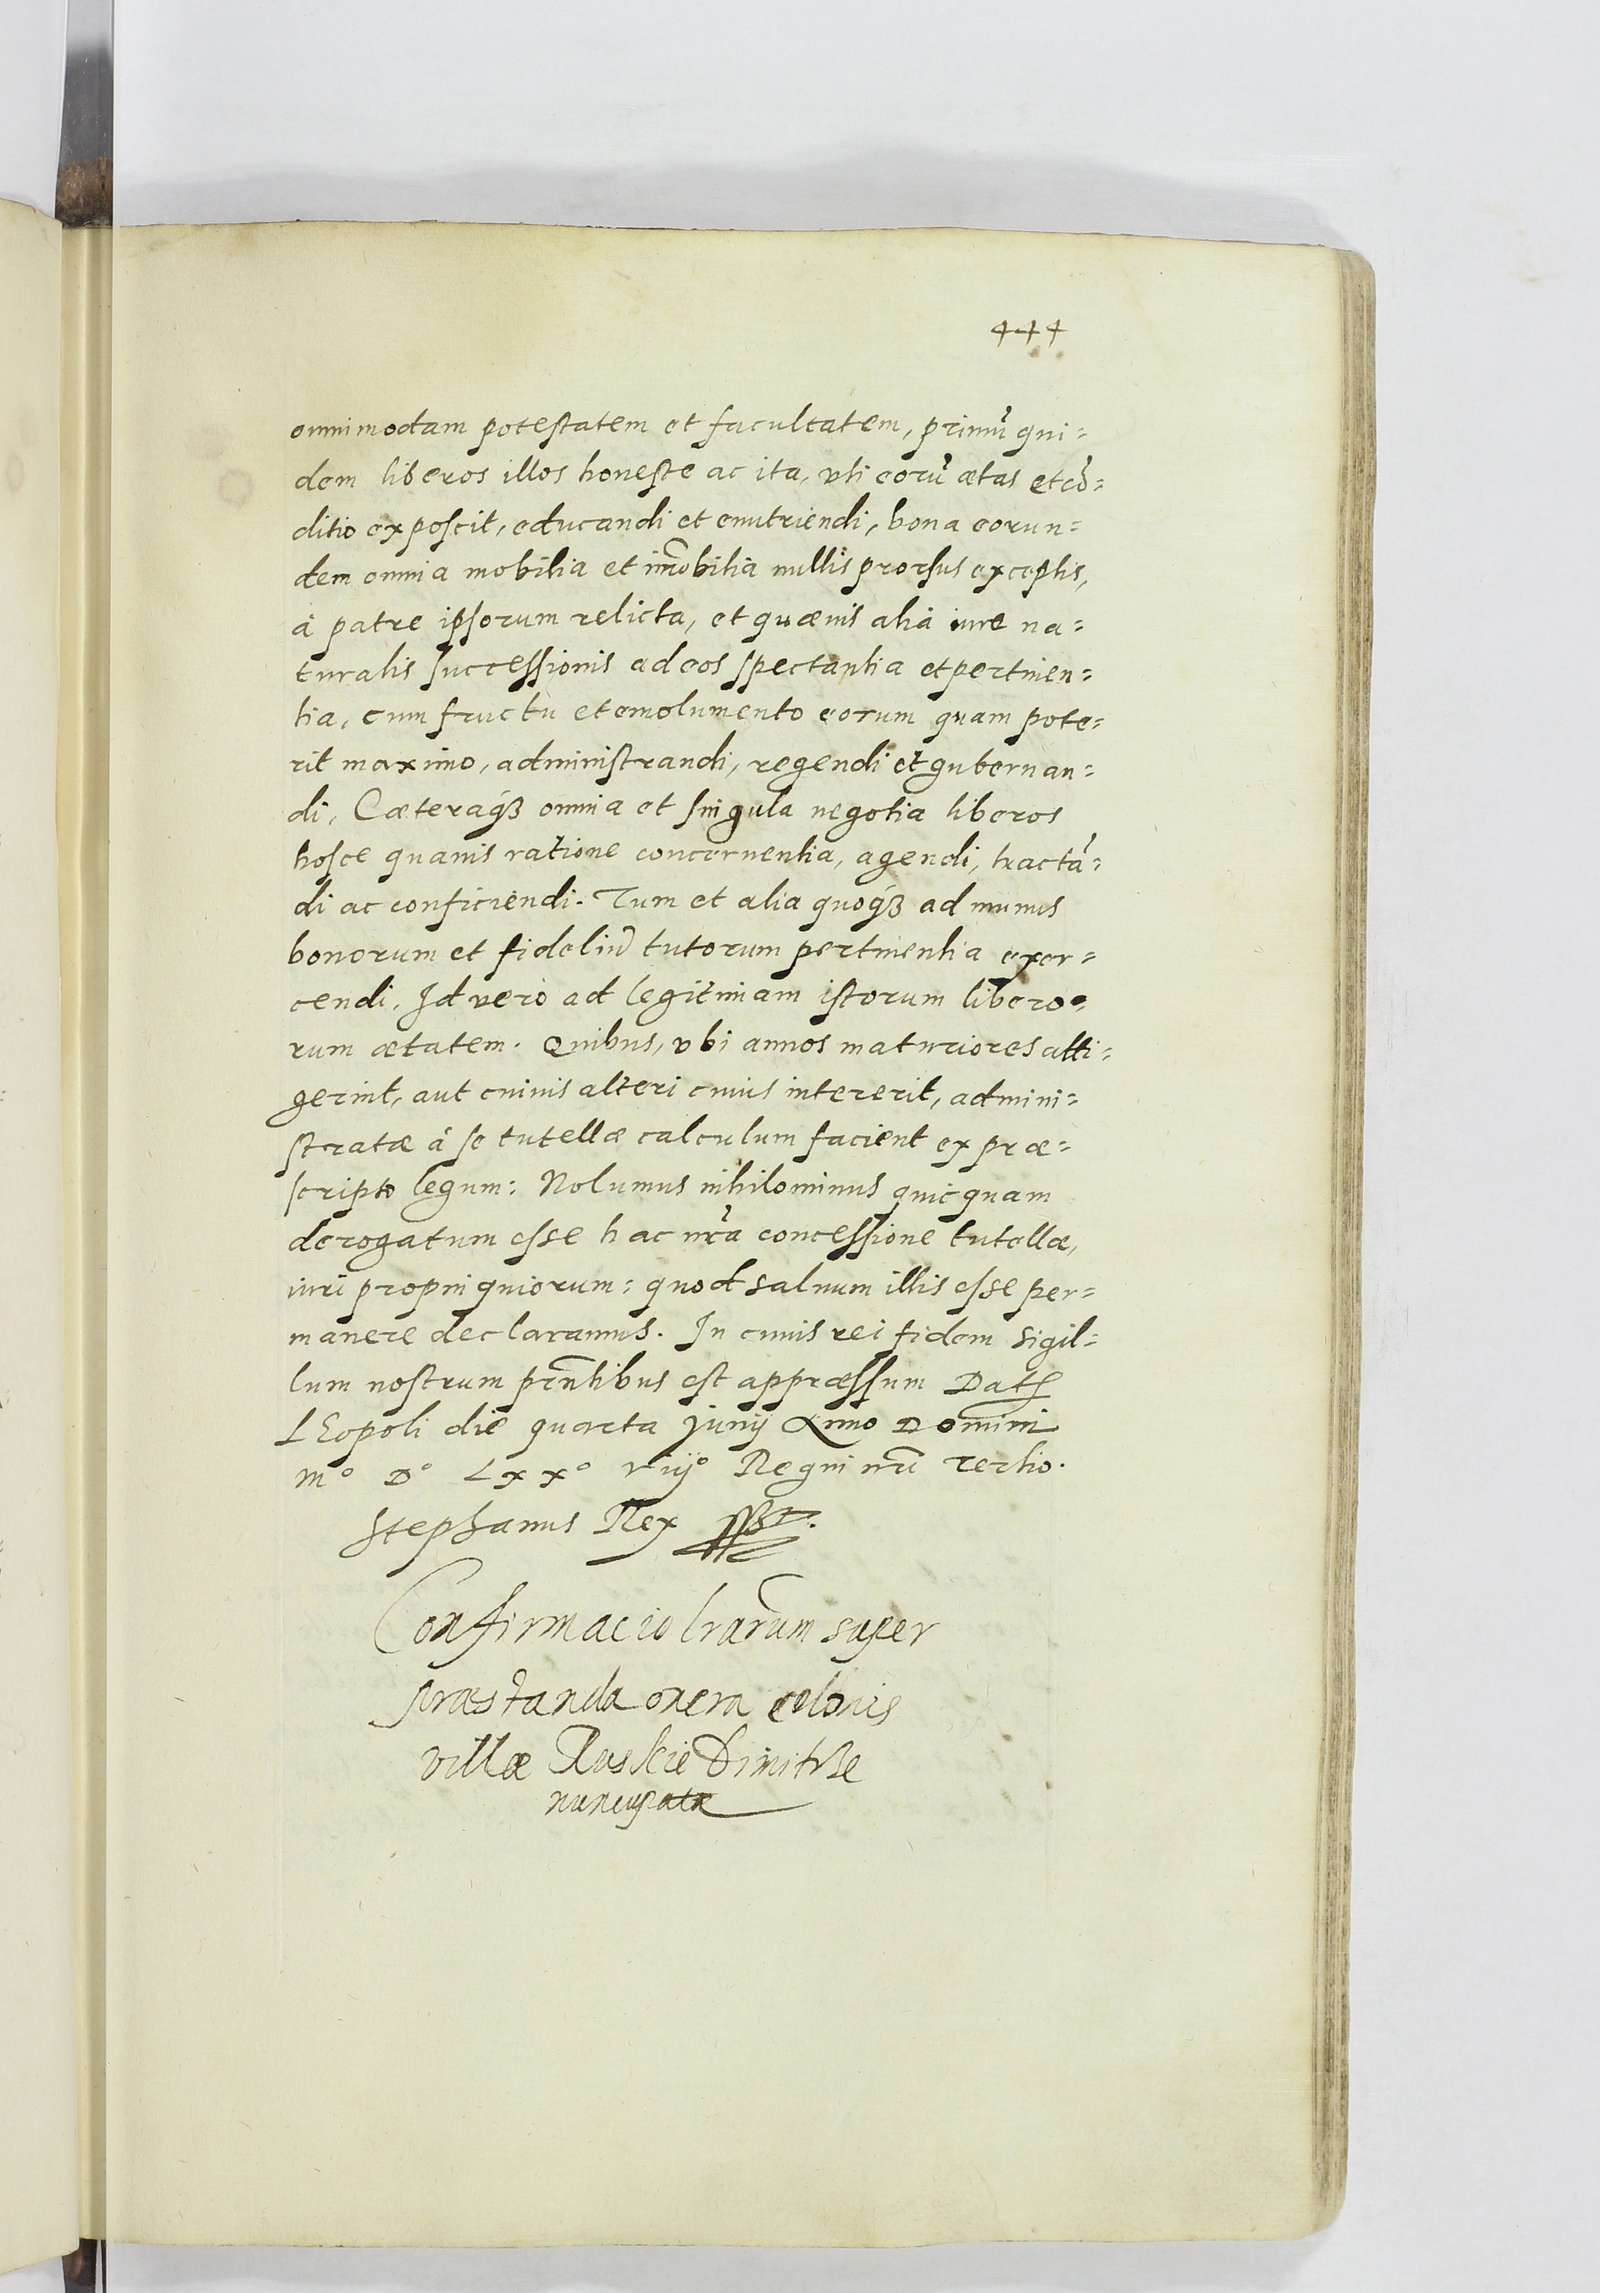 444
omnimodam potestatem et facultatem, primũ qui=
dem liberos illos honeste ac ita, vti eorũ ætas et cõ=
ditio exposcit, educandi et enutriendi, bona eorun=
dem omnia mobilia et im̃obilia nullis prorsus exceptis,
à patre ipsorum relicta, et quævis alia iure na=
turalis successionis ad eos spectantia et pertinen=
tia, cum fructu et emolumento eorum quam pote=
rit maximo, administrandi, regendi et gubernan=
di, Cæteraqꝫ omnia et singula negotia liberos
hosce quavis ratione concernentia, agendi, tractã=
di ac conficiendi. Tum et alia quoqꝫ ad munus
bonorum et fideliũ tutorum pertinentia exer=
cendi. Id vero ad legitimam istorum libero=
rum ætatem. Quibus, vbi annos maturiores atti=
gerint, aut cuivis alteri cuius intererit, admini=
stratæ à se tutellæ calculum facient ex præ=
scripto legum: Nolumus nihilominus quicquam
derogatum esse hac nr̃a concessione tutellæ,
iuri propinquiorum: quod salvum illis esse per=
manere declaramus. In cuius rei fidem sigil=
lum nostrum pr̃ntibus est appræssum Datꝭ
LEopoli die quarta Junij Anno Domini
Mº Dº Lxxº viijº Regni nr̃i Tertio.
Stephanus Rex sst.
Confirmacio lr̃arum super
præstanda onera colonis
villæ Ruskie Dimitrze
nuncupatæ